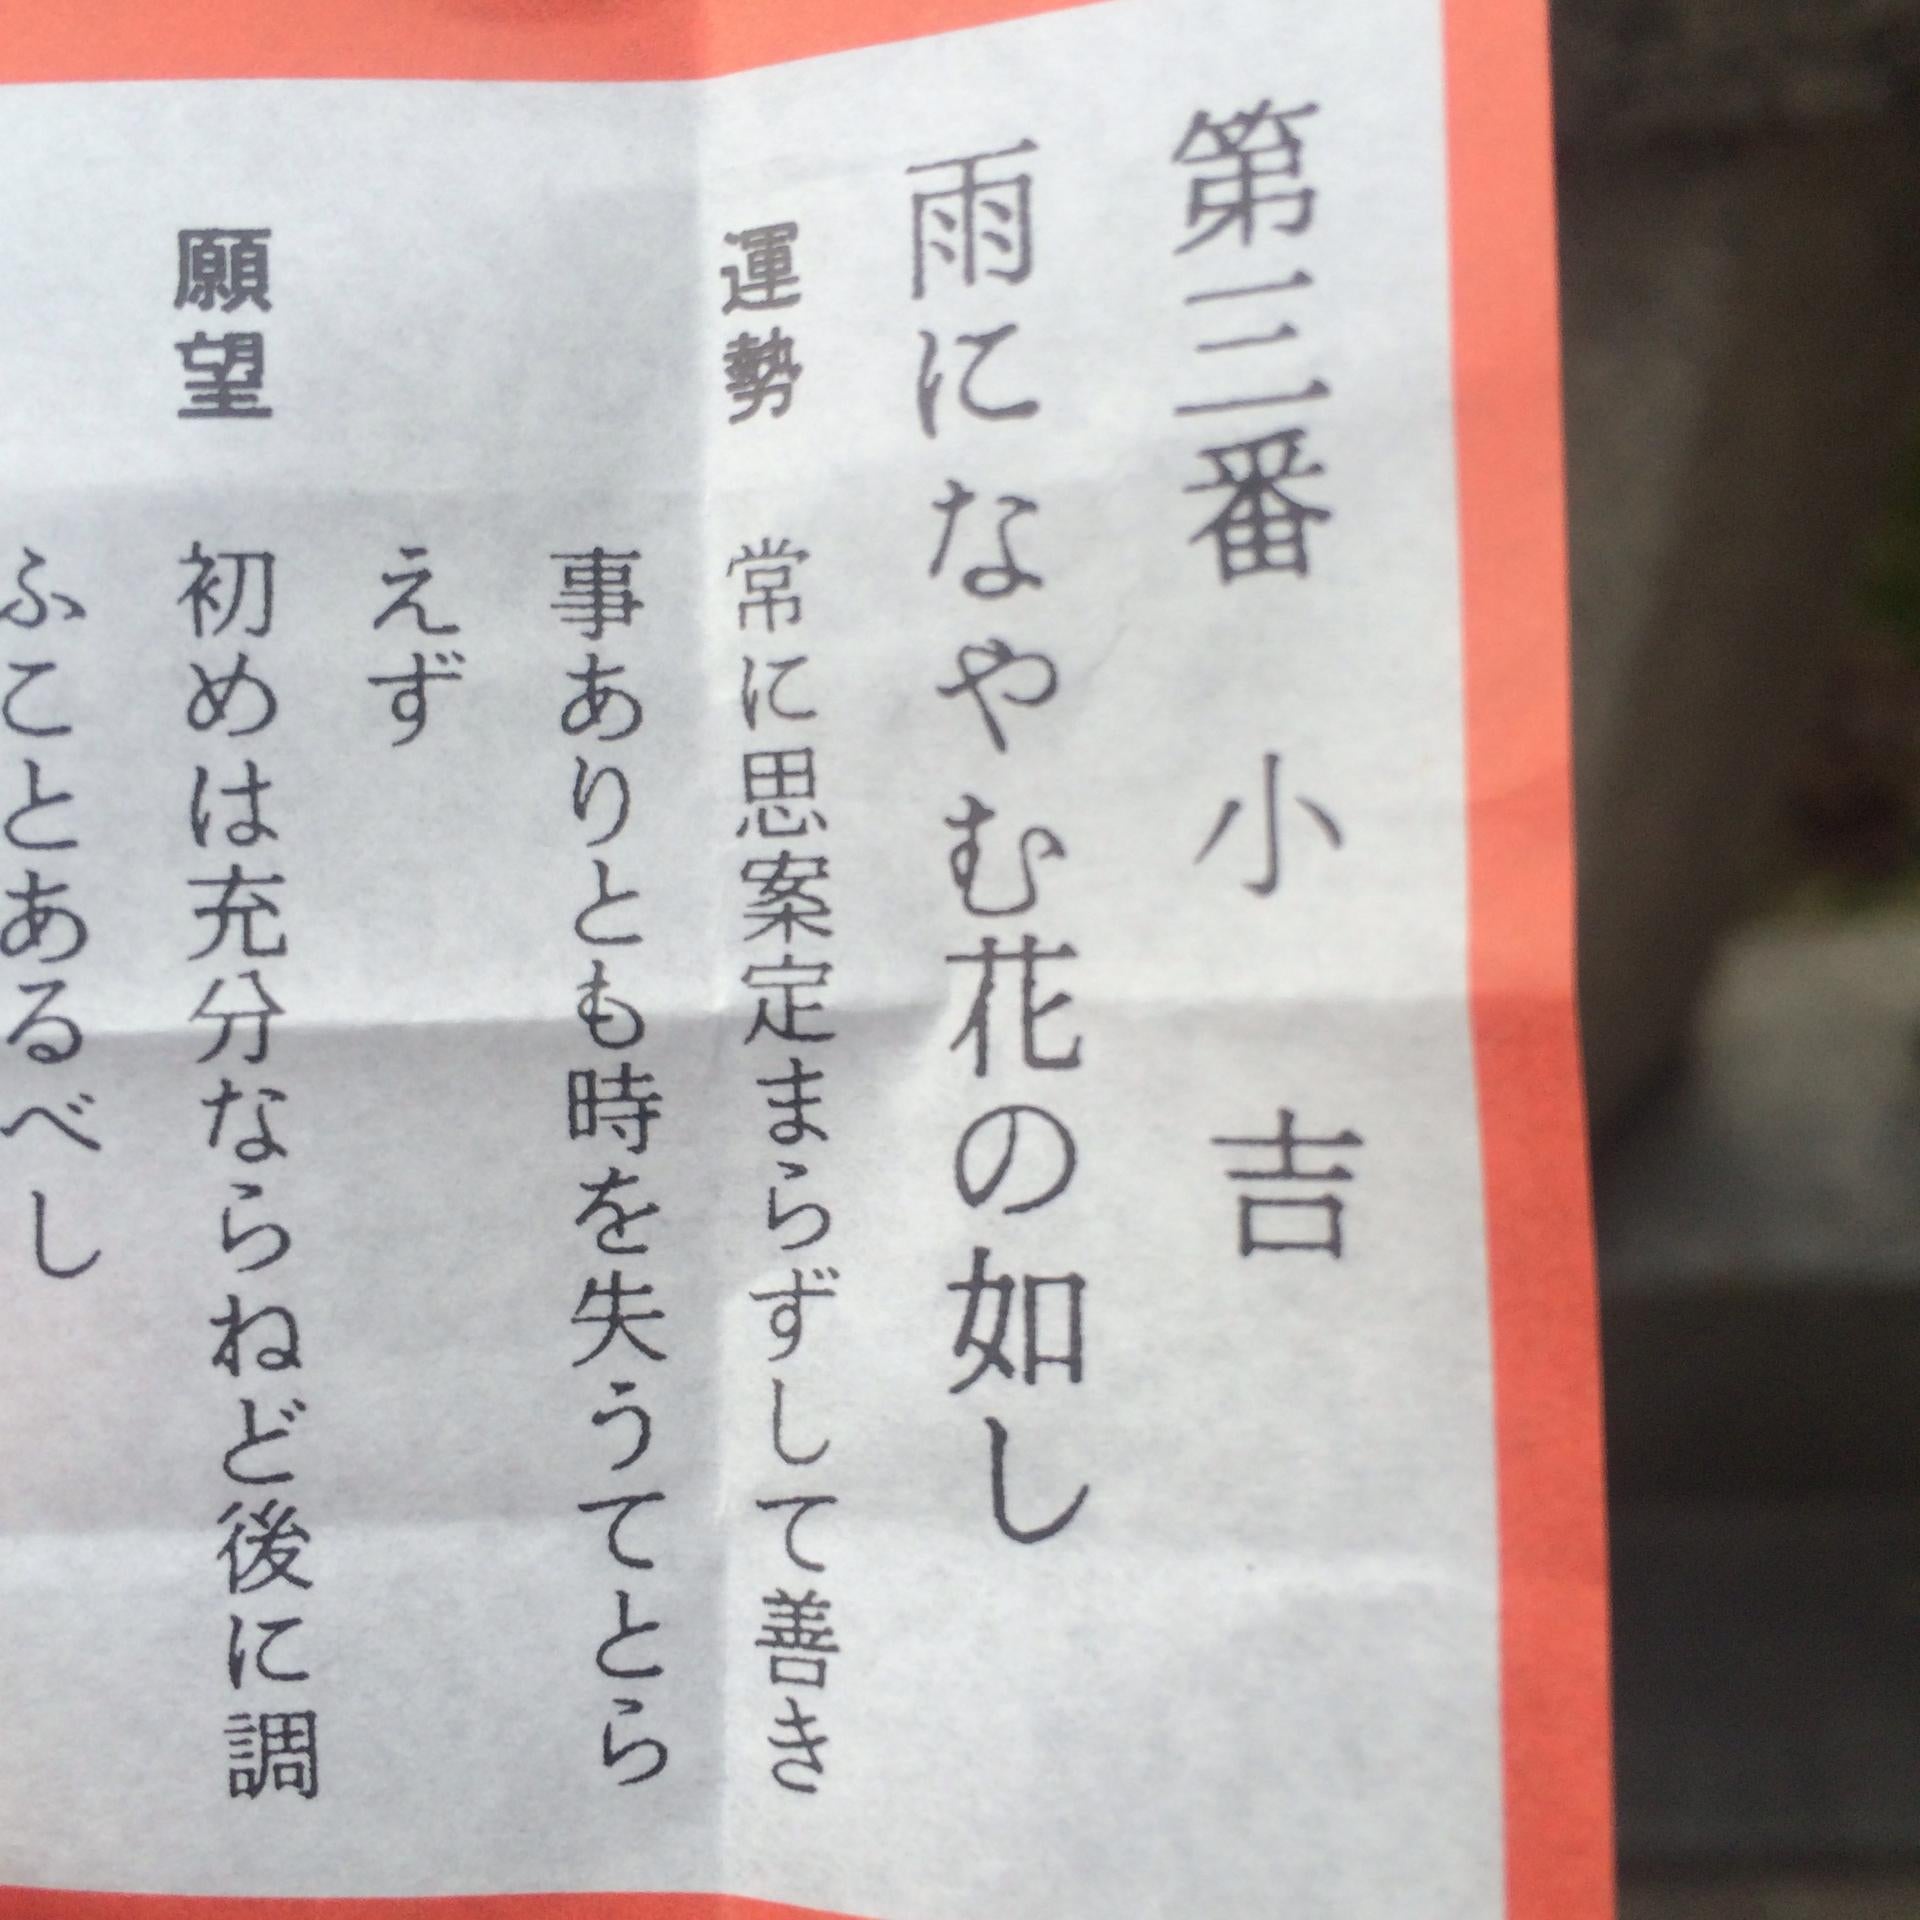 第三番 小吉
雨になやむ花の如し
運勢 常に思案定まらずして善き
事ありとも時を失うてとら
えず
願望 初めは充分ならねど後に調
ふことあるべし